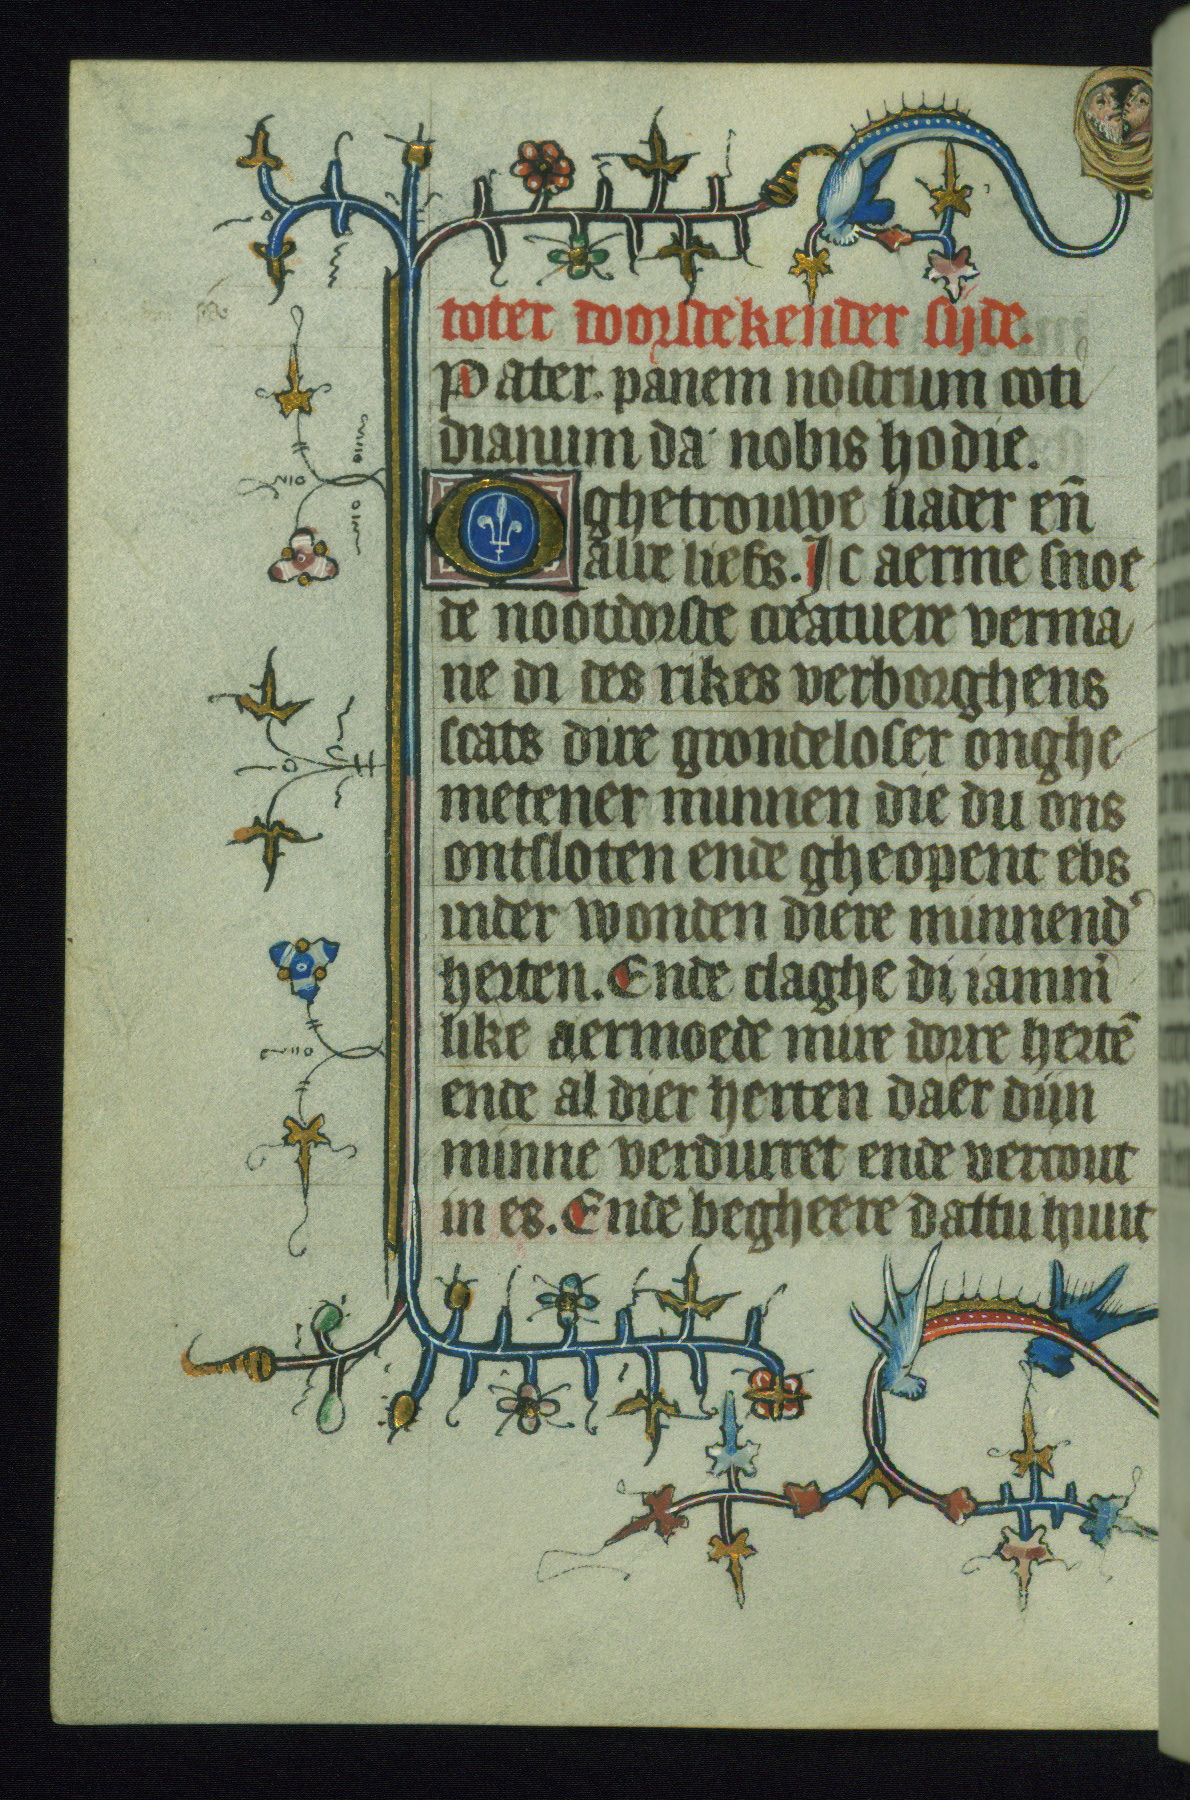 toter doorstekender sijde.
Pater. panem nostrum coti
dianum da nobis hodie.
O ghetrouwe vader en̄
alre liefs. Ic aerme snoe
de nootdorste creatuere verma
ne di des rikes verborghens
scats dire grondeloser onghe
metener minnen die du ons
ontsloten ende gheopent ebs
inder wonden diere minnend'
herten. Ende claghe di iamm̄
like aermoede mire dorre hertē
ende al dier herten daer dijn
minne verdurret ende vercout
in es. Ende begheere dattu huut